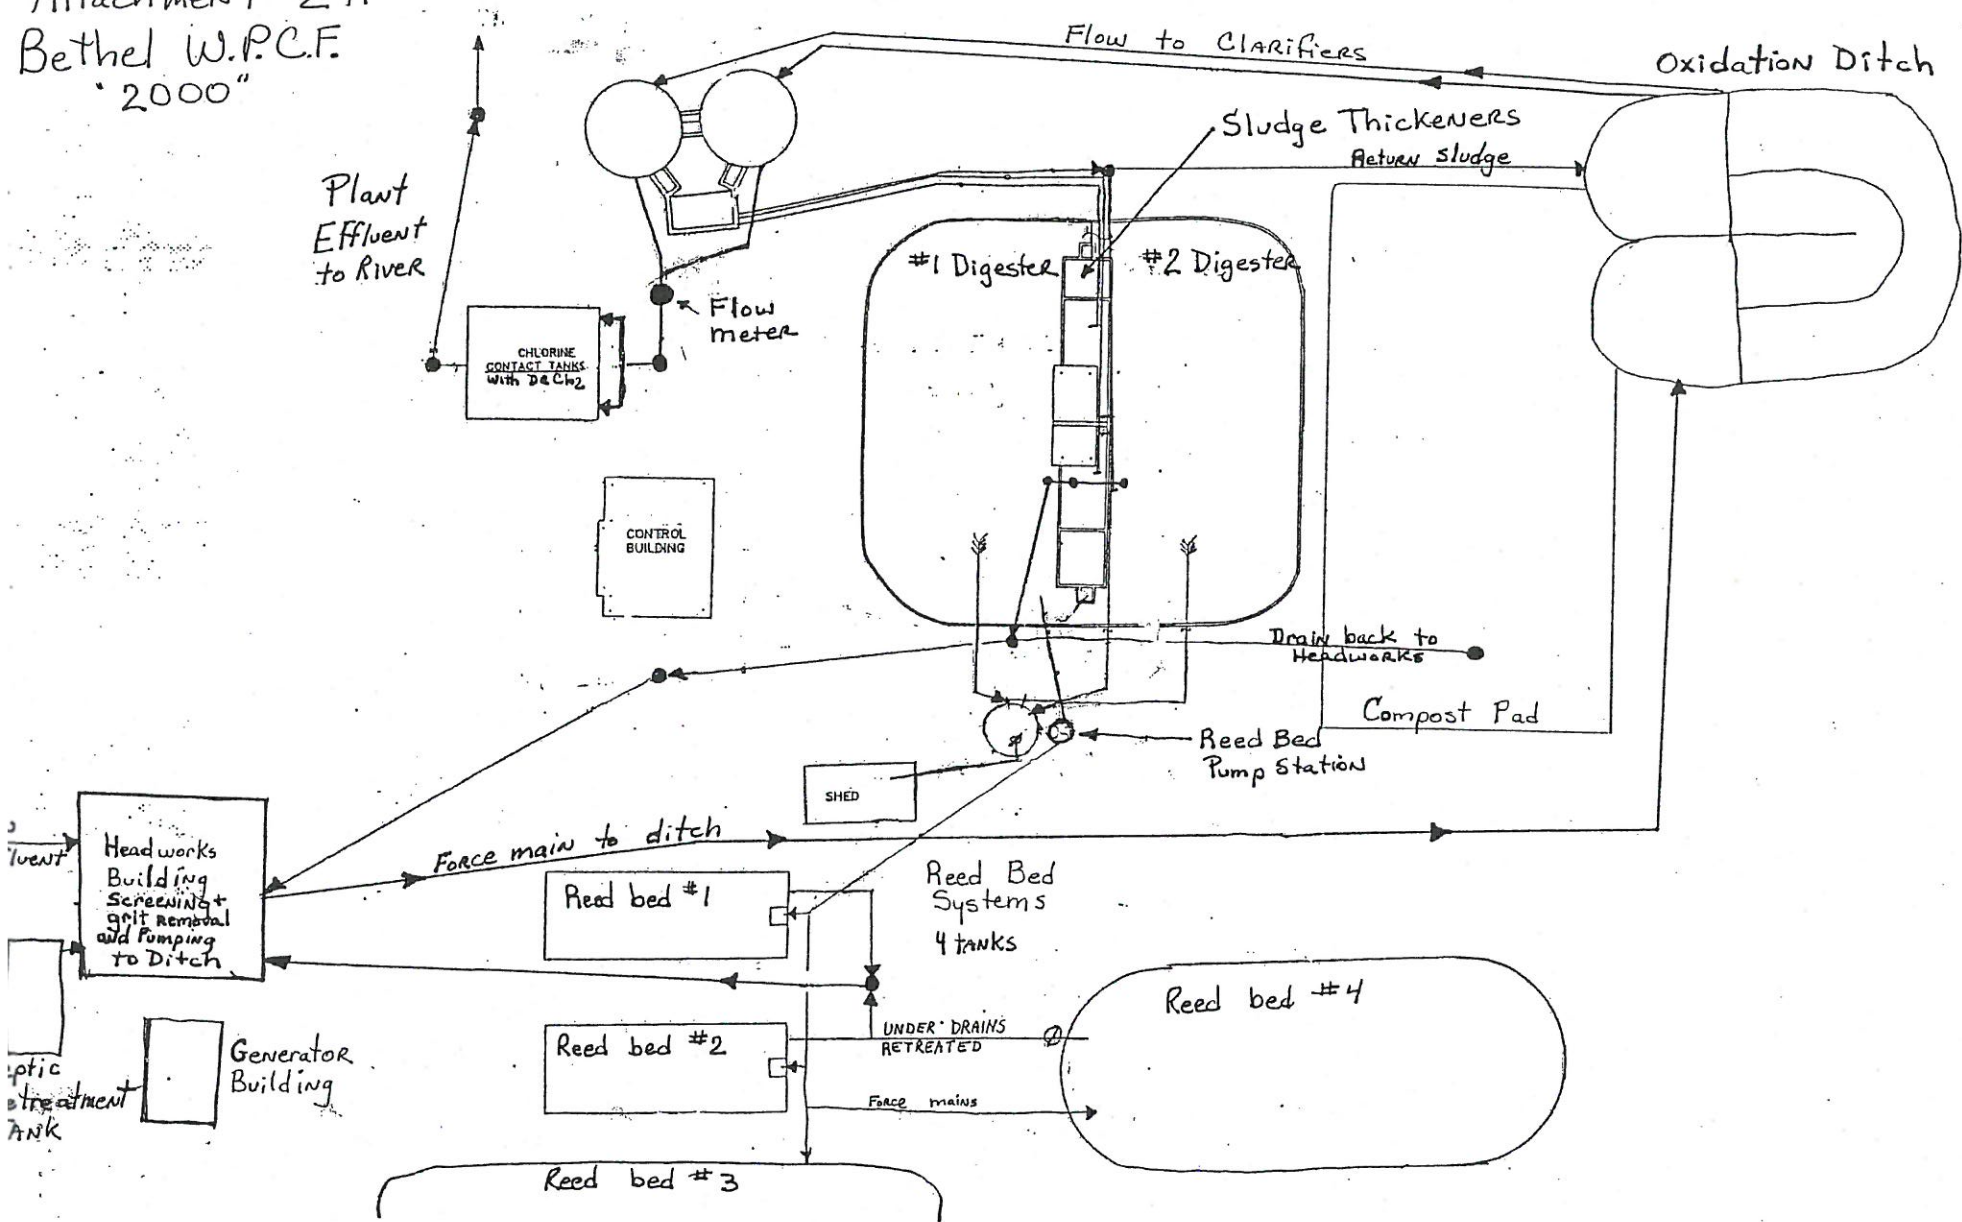 Attachment 2A
Bethel W.P.C.F.
"2000"
Flow to Clarifiers
Oxidation Ditch
Sludge Thickeners
Return Sludge
Plant
Effluent
to River
#1 Digester
#2 Digester
Flow
meter
CHLORINE
CONTACT TANKS
with DeChl2
CONTROL
BUILDING
Drain back to
Headworks
Compost Pad
Reed Bed
Pump Station
SHED
Force main to ditch
Headworks
Building
Screening +
grit Removal
and Pumping
to Ditch
Reed bed #1
Reed Bed
Systems
4 tanks
Reed bed #4
Reed bed #2
UNDER DRAINS
RETREATED
Force mains
Generator
Building
Reed bed #3
luent
ptic
etreatment
ANK